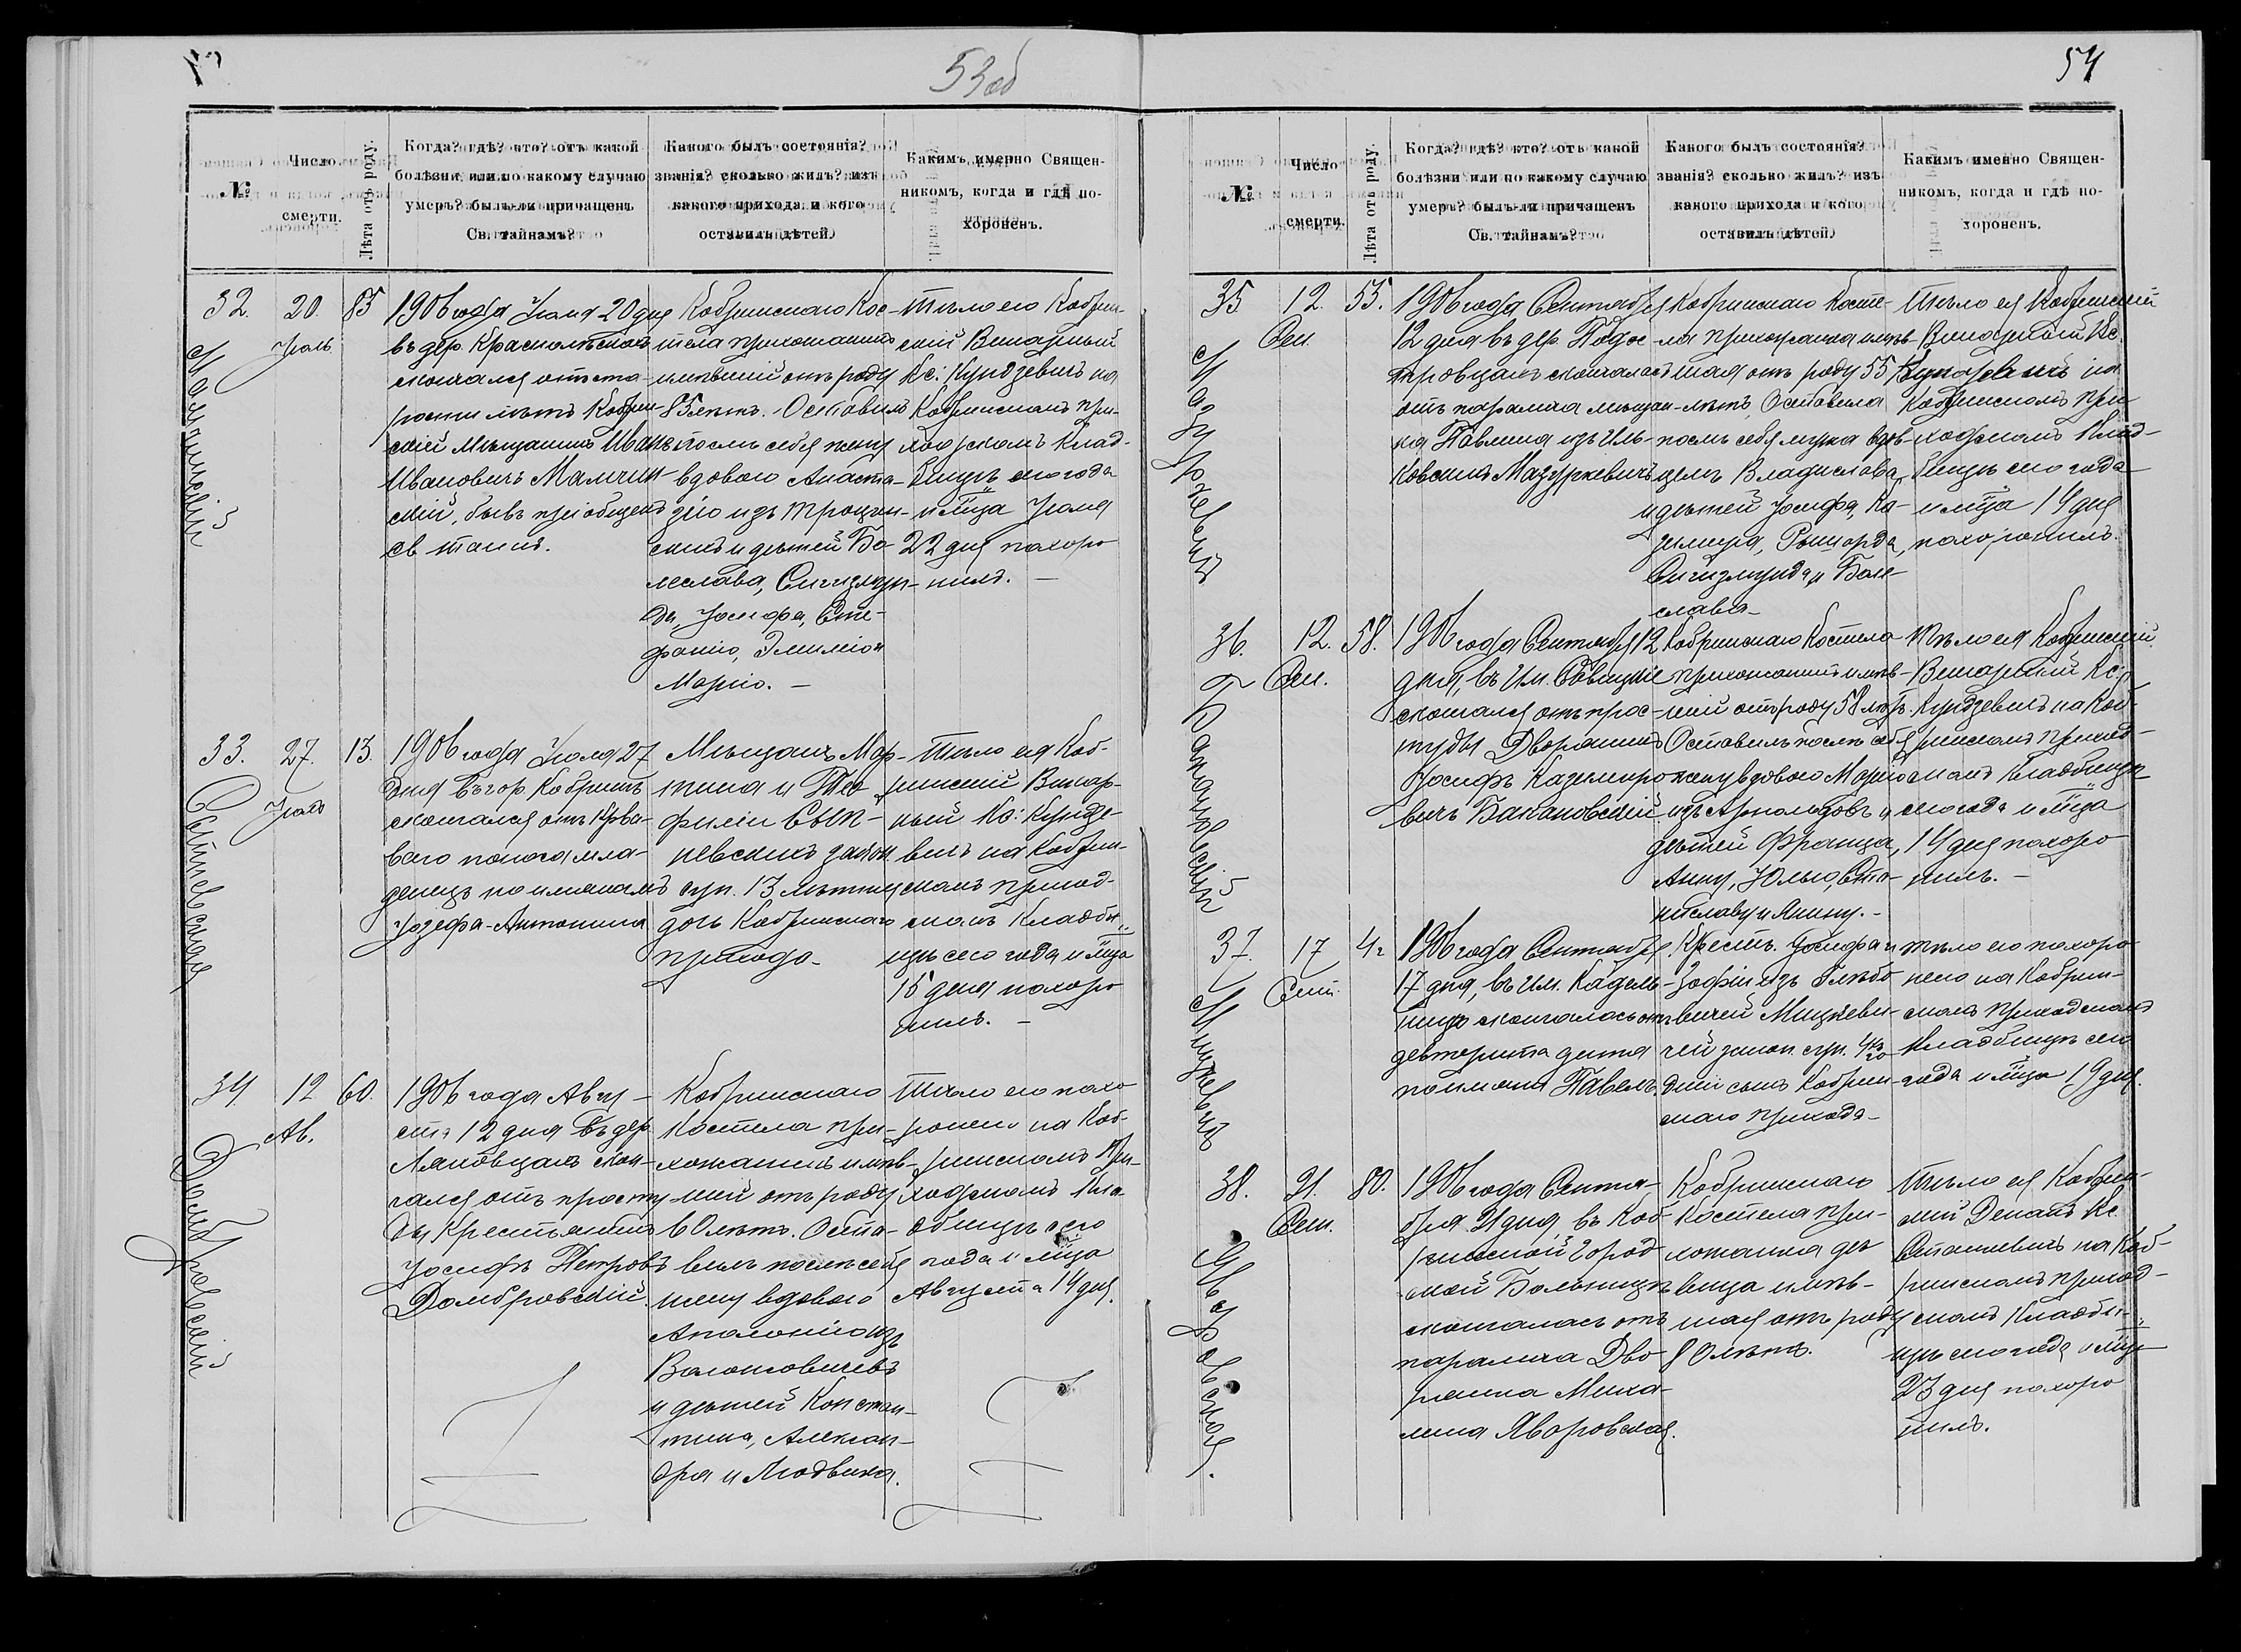 53об
54
№
Число смерти.
Лѣта отъ роду.
Когда? гдѣ? кто? отъ какой
болѣзни или по какому случаю
умеръ? былъ-ли причащенъ
Св. тайнамъ?
Какого былъ состоянія?
званія? сколько жилъ? изъ
какого прихода и кого
оставилъ дѣтей.
Какимъ именно Священ-
никомъ, когда и гдѣ по-
хороненъ.
32.
20.
Іюль
85
Малчинскій
1906 года Іюля 20 дня
въ дер.
скончался отъ ста-
рости лѣтъ Кобрин-
скій Мѣщанинъ Иванъ
Ивановичъ Малчин-
скій, бывъ пріобщенъ
св таинъ.
Кобринскаго Кос-
тела прихожанинъ
имѣвшій отъ роду
85 лѣтъ. Оставилъ
послѣ себя жену
вдовою Анаста-
зію изъ Троцин-
скихъ и дѣтей Бо-
леслава, Сигизмун-
да, Іосифа, Сте-
фанію, Эмилію и
Марію. —
Тѣло его Кобрин-
скій Викарный
Кс: Кундзевичъ на
Кобринскомъ при-
ходскомъ клад-
бищѣ сего года
и м̃ца Іюля
22 дня похоро
нилъ. —
33.
27.
Іюль
13.
1906 года Іюля 27
дня въ гор. Кобринѣ
скончался отъ крова-
ваго поноса мла-
денецъ по именамъ
Юзефа-Антонина
Мѣщанъ Мар-
тина и Тео-
фили
закон
суп. 13 лѣтняя
дочь Кобринскаго
прихода-
Тѣло ея Коб-
ринскій Викар-
ный Кс: Кундзе-
вичъ на Кобрин-
скомъ приход-
скомъ кладби-
щѣ сего года и м̃ца
дня похоро
нилъ. —
34.
12
Ав.
60.
Домбровскій
1906 года Авгу-
ста 12 дня въ дер.
Ляховцахъ скон-
чался отъ просту-
ды Крестьянинъ
Іосифъ Петровъ
Домбровскій
Кобринскаго
Костела при-
хожанинъ имѣв-
шій отъ роду
60 лѣтъ. Оста-
вилъ послѣ себя
жену вдовою
Аполонію изъ
и дѣтей Констан-
тина, Алексан-
дра и Людвика.
Тѣло его похо
ронено на Коб-
ринскомъ При-
ходскомъ Кла-
дбищѣ сего
года и м̃ца
Августа 14 дня.
35
12.
Сен
55.
Мазуркевичъ
1906 года Сентября
12 дня въ дер.
скончалась
отъ паралича мѣщан-
ка Павлина изъ Иль-
ковскихъ Мазуркевичъ
Кобринскаго Косте-
ла прихожанка имѣв-
шая отъ роду 55
лѣтъ, Оставила
послѣ себя мужа вдов-
цемъ Владислава,
и дѣтей Іосифа, Ка-
зимира, Рышарда,
Сигизмунда и Боле-
слава-
Тѣло ея Кобринскій
Викарный Кс.
Кундзевичъ на
Кобринскомъ при
ходскомъ Клад-
бищѣ сего года
и м̃ца 14 дня
похоронилъ.
36.
12.
Сен.
58.
Бакановскій
1906 года Сентября 12
дня, въ Им.
скончался отъ прос-
туды Дворянинъ
Іосифъ Казимиро
вичъ Бакановскій
Кобринскаго Костела
прихожанинъ имѣв-
шій отъ роду 58 лѣтъ.
Оставилъ послѣ себя
жену вдовою Марію
изъ Арнольдовъ и
дѣтей Франца,
Анну, Юлью, Ста-
ниславу и Янину.-
Тѣло ея Кобринскій
Викарный Кс.
Кундзевичъ на Коб-
ринскомъ приход-
скомъ кладбищѣ
сего года и м̃ца
14 дня похоро
нилъ. —
37.
17
Сент.
Мицкевичъ
1906 года Сентября
17 дня, въ им.
скончалось отъ
дифтерита дитя
по имени Павелъ.
Крест. Іосифа и
Зофіи изъ
Мицкеви-
чей закон. суп.
сынъ Кобрин-
скаго прихода-
тѣло его похоро
нено на Кобрин-
скомъ приходскомъ
Кладбищѣ сего
года и м̃ца 19 дня.
38.
21.
Сен.
80.
Яворовская.
1906 года Сентя-
бря 21 дня, въ Коб-
ринской Город
ской Больницѣ
скончалась отъ
паралича Дво-
рянка Миха-
лина Яворовская.
Кобринскаго
Костела при-
хожанка дѣ
вица имѣв-
шая отъ роду
80 лѣтъ.
Тѣло ея Кобрин-
скій Деканъ Кс.
на Коб-
ринскомъ приход-
скомъ кладби-
щѣ сего года и м̃ца
23 дня похоро
нилъ.